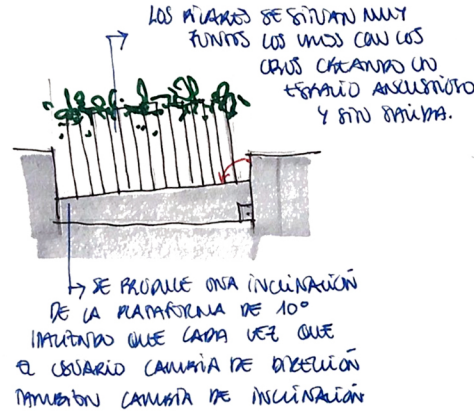 LOS PILARES SE SITUAN MUY
JUNTOS LOS UNOS CON LOS
OTROS CREANDO UN
ESPACIO ANGUSTIOSO
Y SIN SALIDA.
SE PRODUCE UNA INCLINACIÓN
DE LA PLATAFORMA DE 10º
HACIENDO QUE CADA VEZ QUE
EL USUARIO CAMBIA DE DIRECCIÓN
TAMBIÉN CAMBIA DE INCLINACIÓN